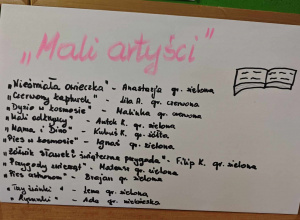 „Mali artyści"
„Nieśmiała owieczka" - Anastazja gr. zielona
„Czerwony kapturek" - Lila A. gr. czerwona
„Dyzio w kosmosie" - Malinka gr. czerwona
„Mali odkrywcy" - Antek K. gr. zielona
„Mama i Dino" - Kubuś K. gr. żółta
„Pies w kosmosie" - Ignaś gr. zielona
„Żółwik Franek i świąteczna przygoda" - Filip K. gr. zielona
„Przygody zwierząt" - Mateusz gr. zielona
„Pies astronom" - Brajan gr. zielona
„Trzy świnki" - Lena gr. zielona
„Rysunki" - Ada gr. niebieska